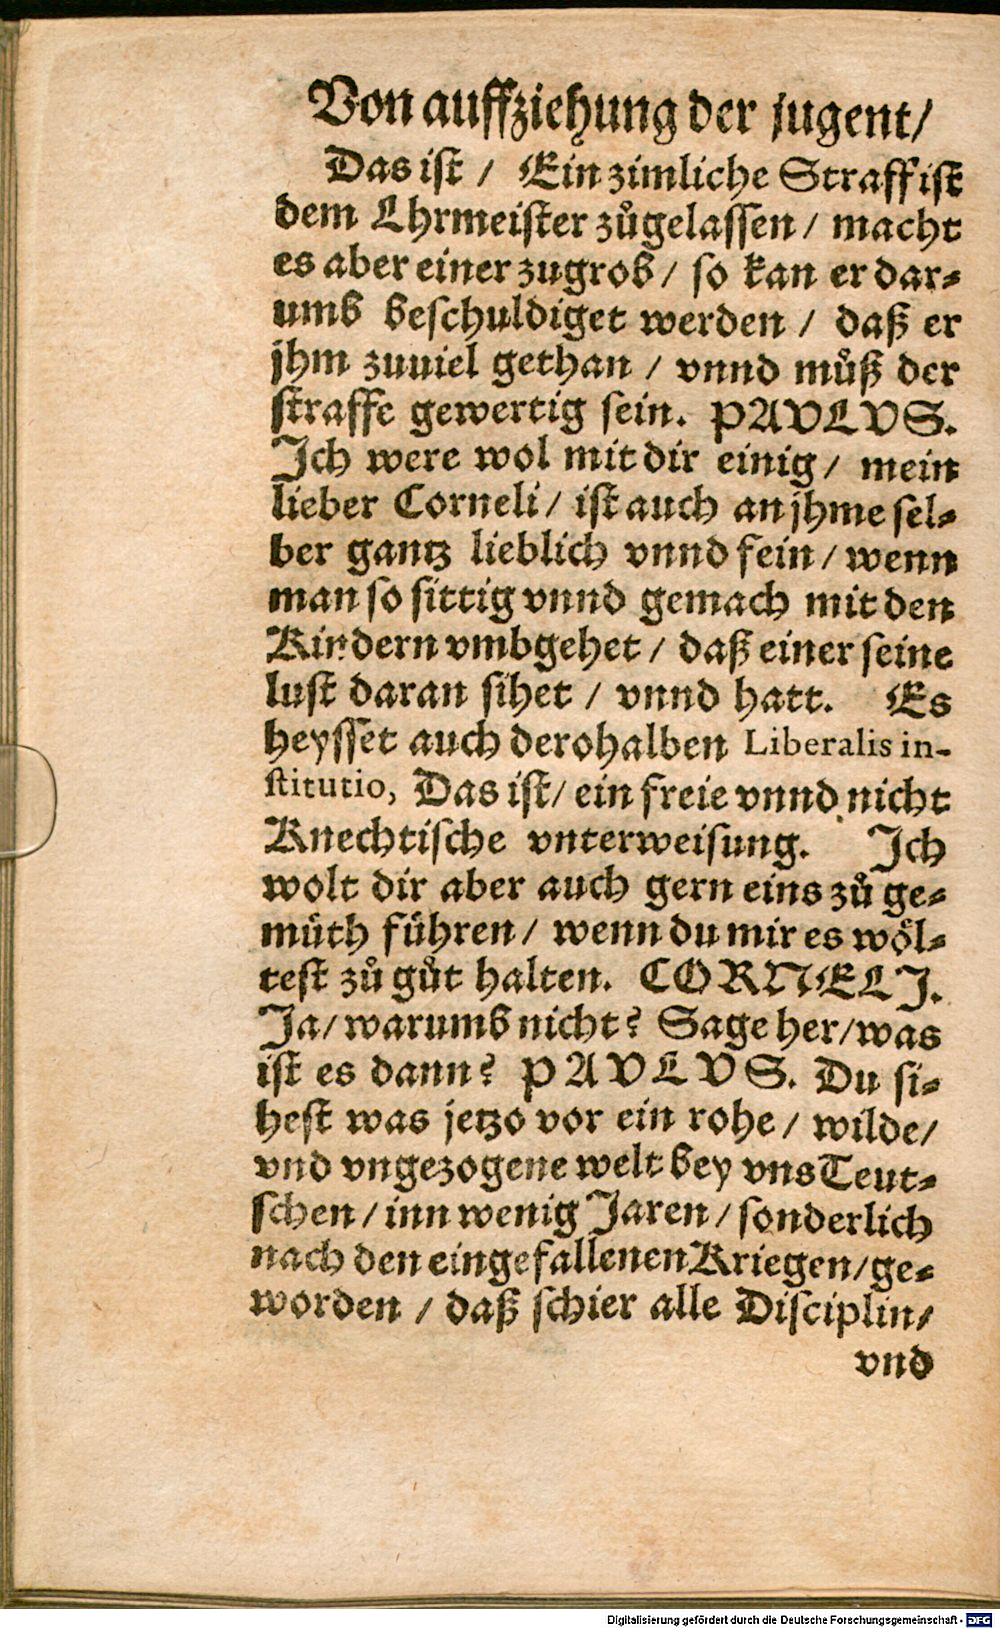 Von auffziehung der jugent/
Das ist / Ein zimliche Straff ist
dem Lhrmeister zůgelassen / macht
es aber einer zugrob / so kan er dar-
umb beschuldiget werden / daß er
jhm zuuiel gethan / vnnd můß der
straffe gewertig sein. PAVLVS.
Ich were wol mit dir einig / mein
lieber Corneli / ist auch an jhme sel-
ber gantz lieblich vnnd fein / wenn
man so sittig vnnd gemach mit den
Kindern vmbgehet / daß einer seine
lust daran sihet / vnnd hatt. Es
heysset auch derohalben Liberalis in-
stitutio, Das ist / ein freie vnnd nicht
Knechtische vnterweisung. Ich
wolt dir aber auch gern eins zů ge-
müth führen / wenn du mir es wöl-
test zů gůt halten. CORNELI.
Ja / warumb nicht? Sage her / was
ist es dann? PAVLVS. Du si-
hest was jetzo vor ein rohe / wilde /
vnd vngezogene welt bey vns Teut-
schen / inn wenig Jaren / sonderlich
nach den eingefallenen Kriegen / ge-
worden / daß schier alle Disciplin /
vnd
Digitalisierung gefördert durch die Deutsche Forschungsgemeinschaft - DFG